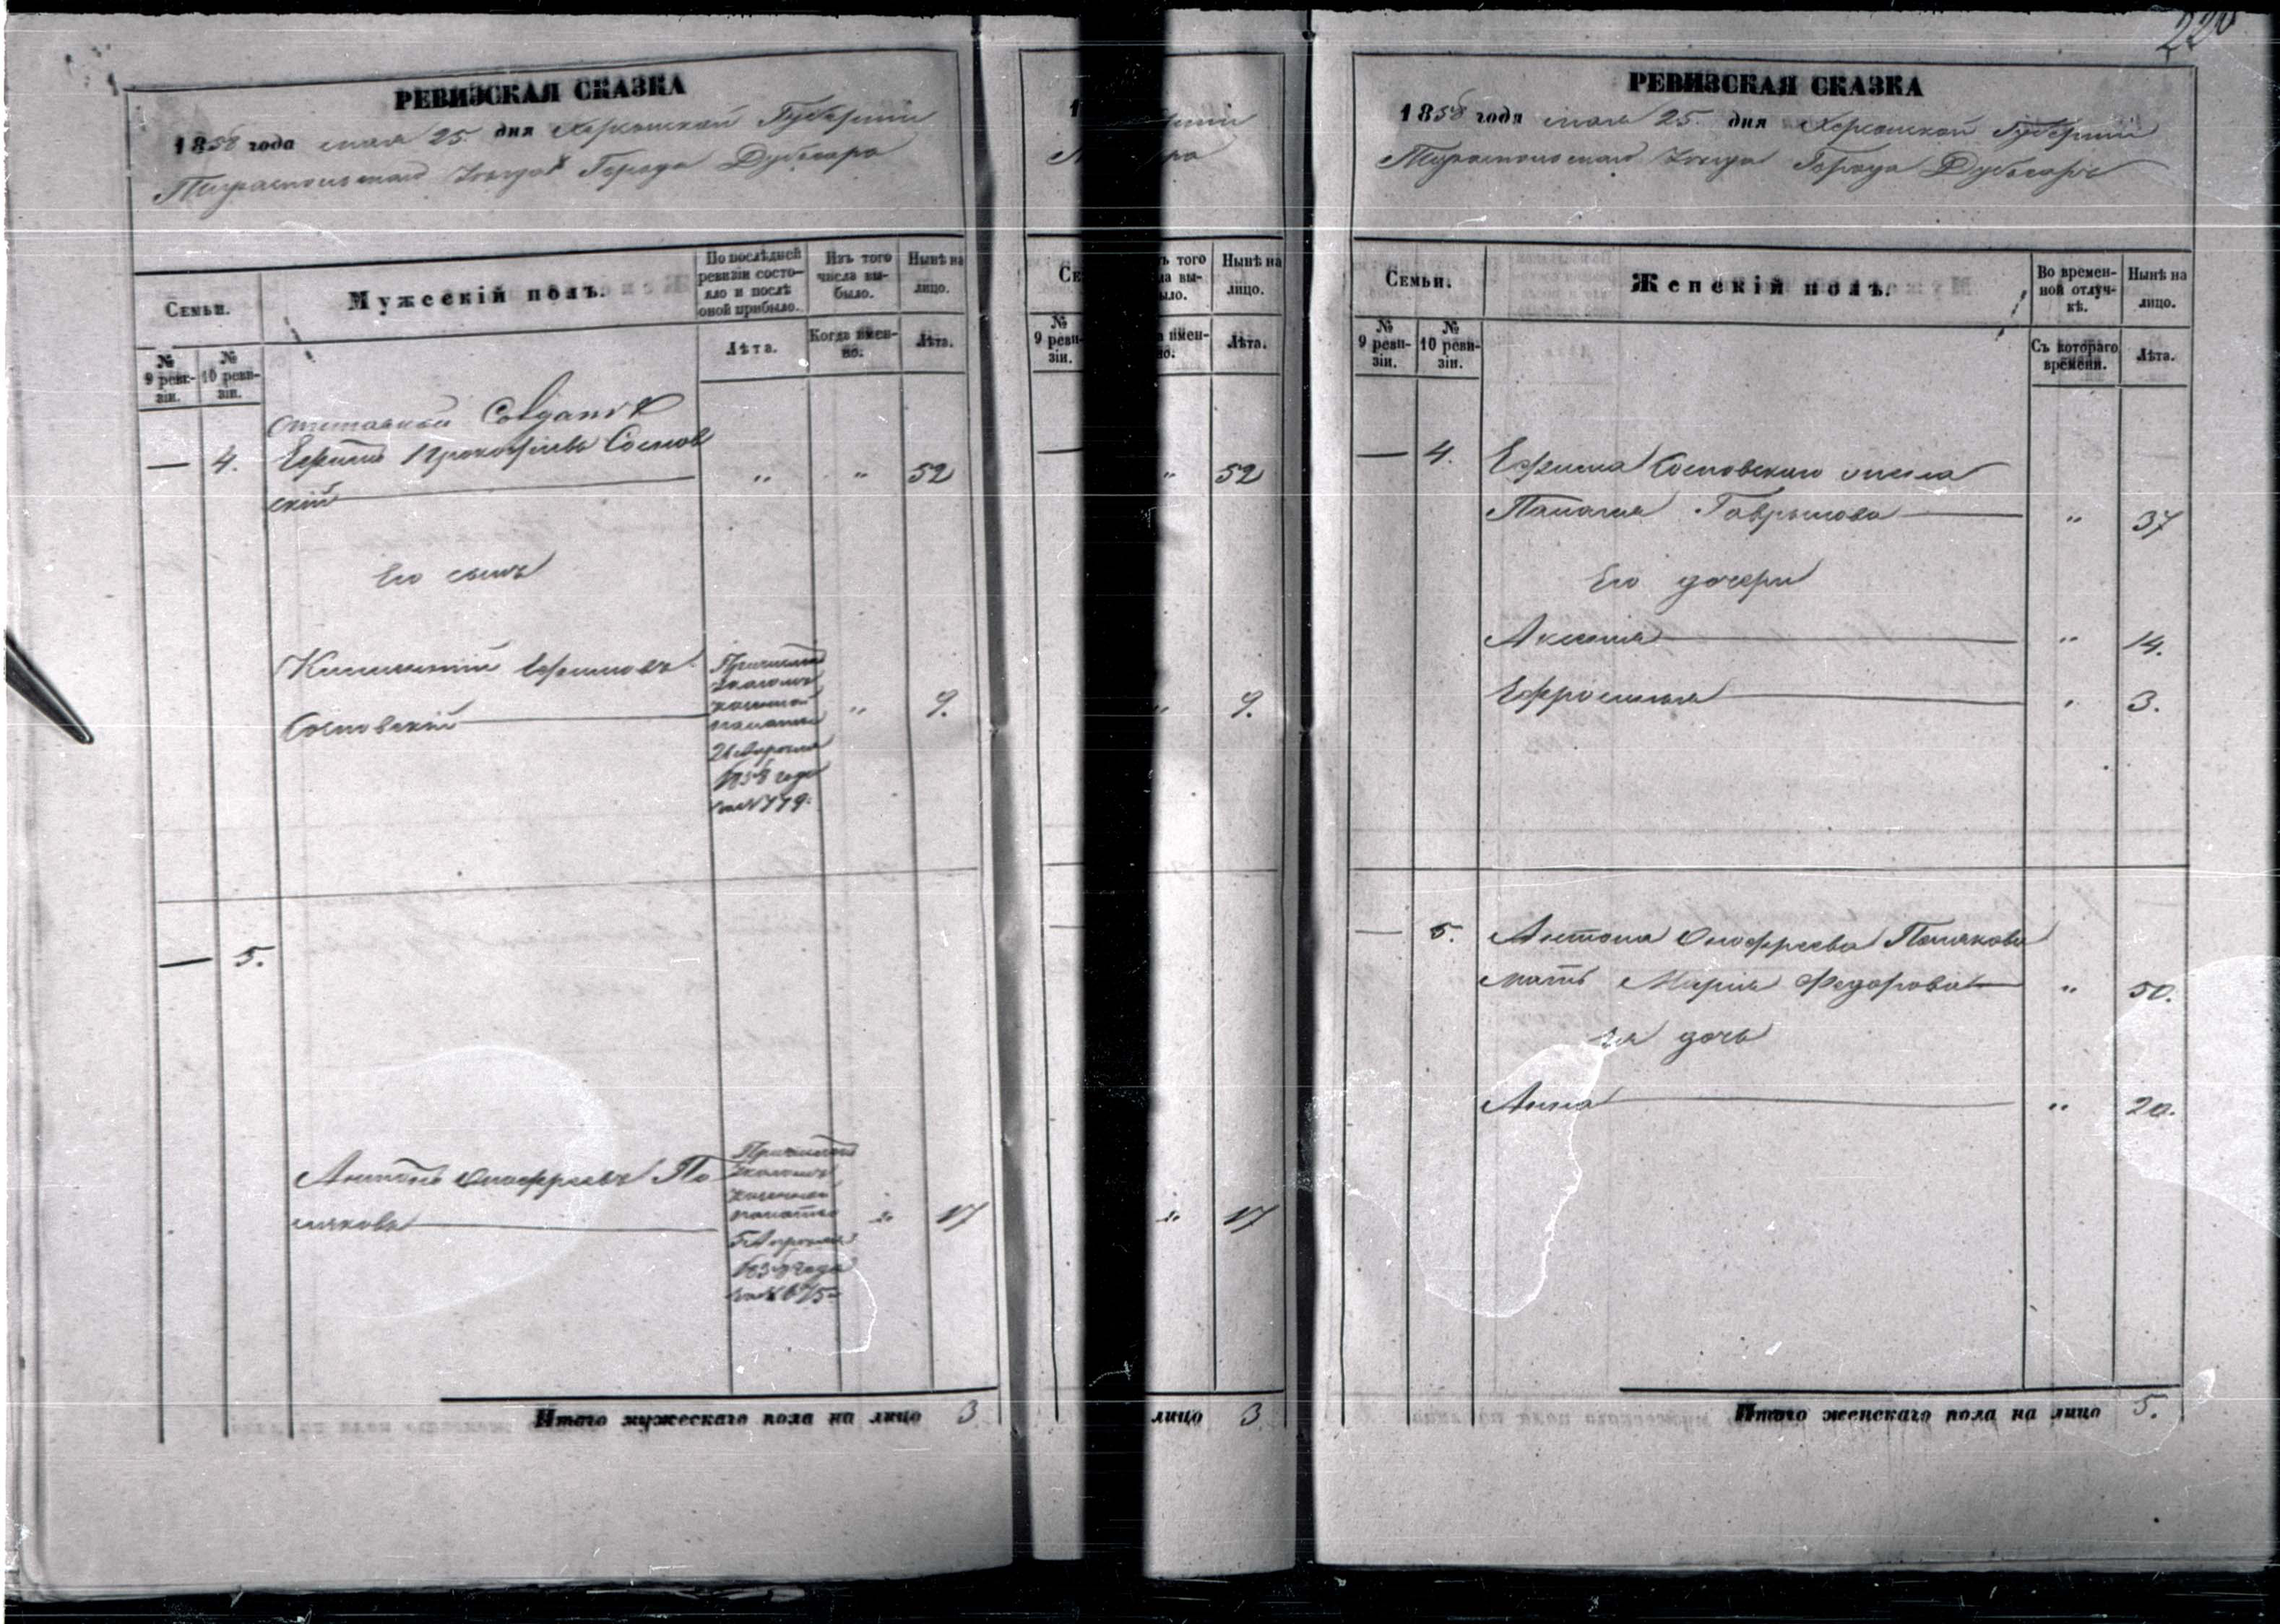 220
РЕВИЗСКАЯ СКАЗКА
1858 года мая 25 дня Херсонской Губернии
Тираспольскаго Уезда Города Дубосаръ
Семьи.
Мужескій полъ.
По послѣдней ревизіи состояло и послѣ оной прибыло.
Изъ того числа выбыло.
Нынѣ на лицо.
№ 9 ревизіи.
№ 10 ревизіи.
Лѣта.
Когда именно.
Лѣта.
Отставной Солдатъ
— 4. Ефимъ Прокофіевъ Соснов
скій " " 52
Его сынъ
Ефимовъ
Сосновскій " 9.
Причисленъ
указомъ
казенной
палаты
26 Апреля
1858 года
за № 779.
— 5.
Антонъ Онофреевъ По
ляковъ " 17
Причисленъ
указомъ
казенной
палаты
5 Апреля
1858 года
за № 675
Итого мужескаго пола на лицо 3
ъ того
ла вы-
ыло.
Нынѣ на
лицо.
№
9 реви-
зіи.
Лѣта.
" 52
" 9.
" 17
лицо 3.
РЕВИЗСКАЯ СКАЗКА
1858 года мая 25 дня Херсонской Губернии
Тираспольскаго Уезда Города Дубосаръ
Семьи.
Женскій полъ.
Во временной отлучкѣ.
Нынѣ на лицо.
№ 9 ревизіи.
№ 10 ревизіи.
Съ котораго времени.
Лѣта.
— 4. Ефима Сосновскаго жена
Гаврилова " 37
Его дочери
Аксенія " 14.
Ефросинья " 3.
— 5. Антона Онофреева Полякова
мать Марія Федорова " 50.
Ея дочь
Анна " 20.
Итого женскаго пола на лицо 5.